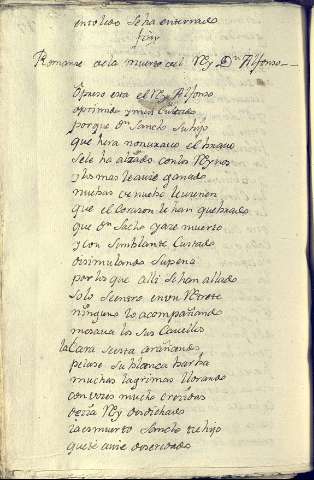 en toledo se ha enterrado
fin
Romanze de la muerte del Rey Dn Alfonso
Opreso esta el Rey Alfonso
oprimido y muy Cuitado
porque Dn Sancho su hijo
que hera nonbrado el brauo
se le ha alzado con los Reynos
y los mas le auie ganado
muchas de nuebo le uienen
que el Corazon le han quebrado
que Dn Sacho yaze muerto
y con semblante Cuitado
disimulando su pena
por los que alli se han allado
solo se entro en un Retrete
ninguno lo acompañando
mesaua los sus Cauellos
la Cara se esta arañando
pelase su blanca barba
muchas lagrimas llorando
con vozes mucho crezidas
dezia Rey desdichado
ya es muerto Sancho tu hijo
que te auie deseredado